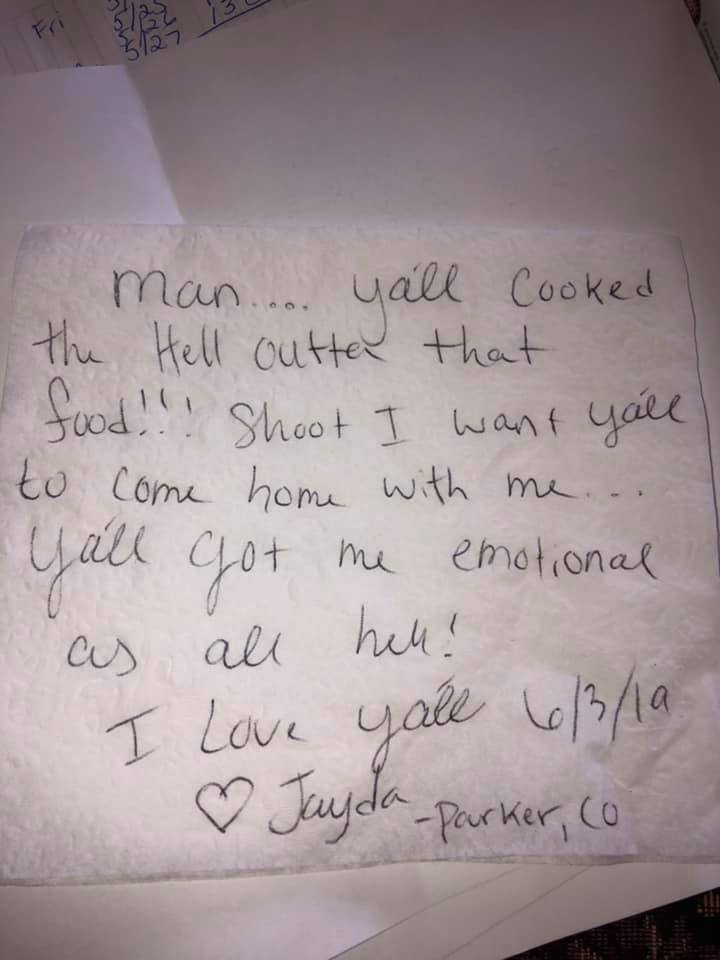 Fri
5/25
5/26
5/27
Man.... ya'll Cooked
the Hell outter that
food!!! Shoot I want ya'll
to come home with me...
Ya'll got me emotional
as all hell!
I Love ya'll 6/3/19
♡ Jayda -Parker, CO